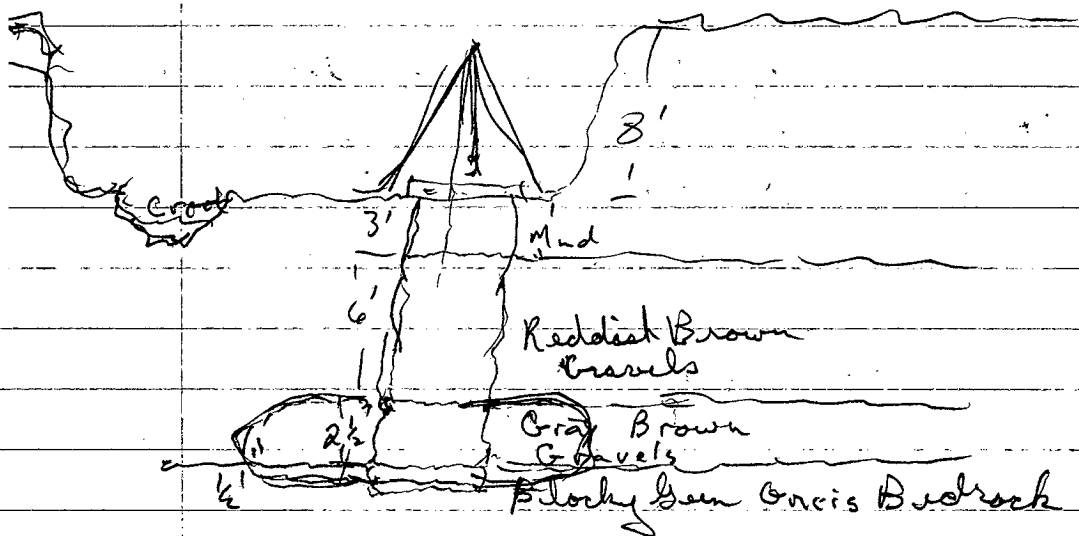 8'
Creek
3'
Mud
6'
Reddish Brown
Gravels
2½
Gray Brown
Gravels
½'
Blocky Gneis Bedrock